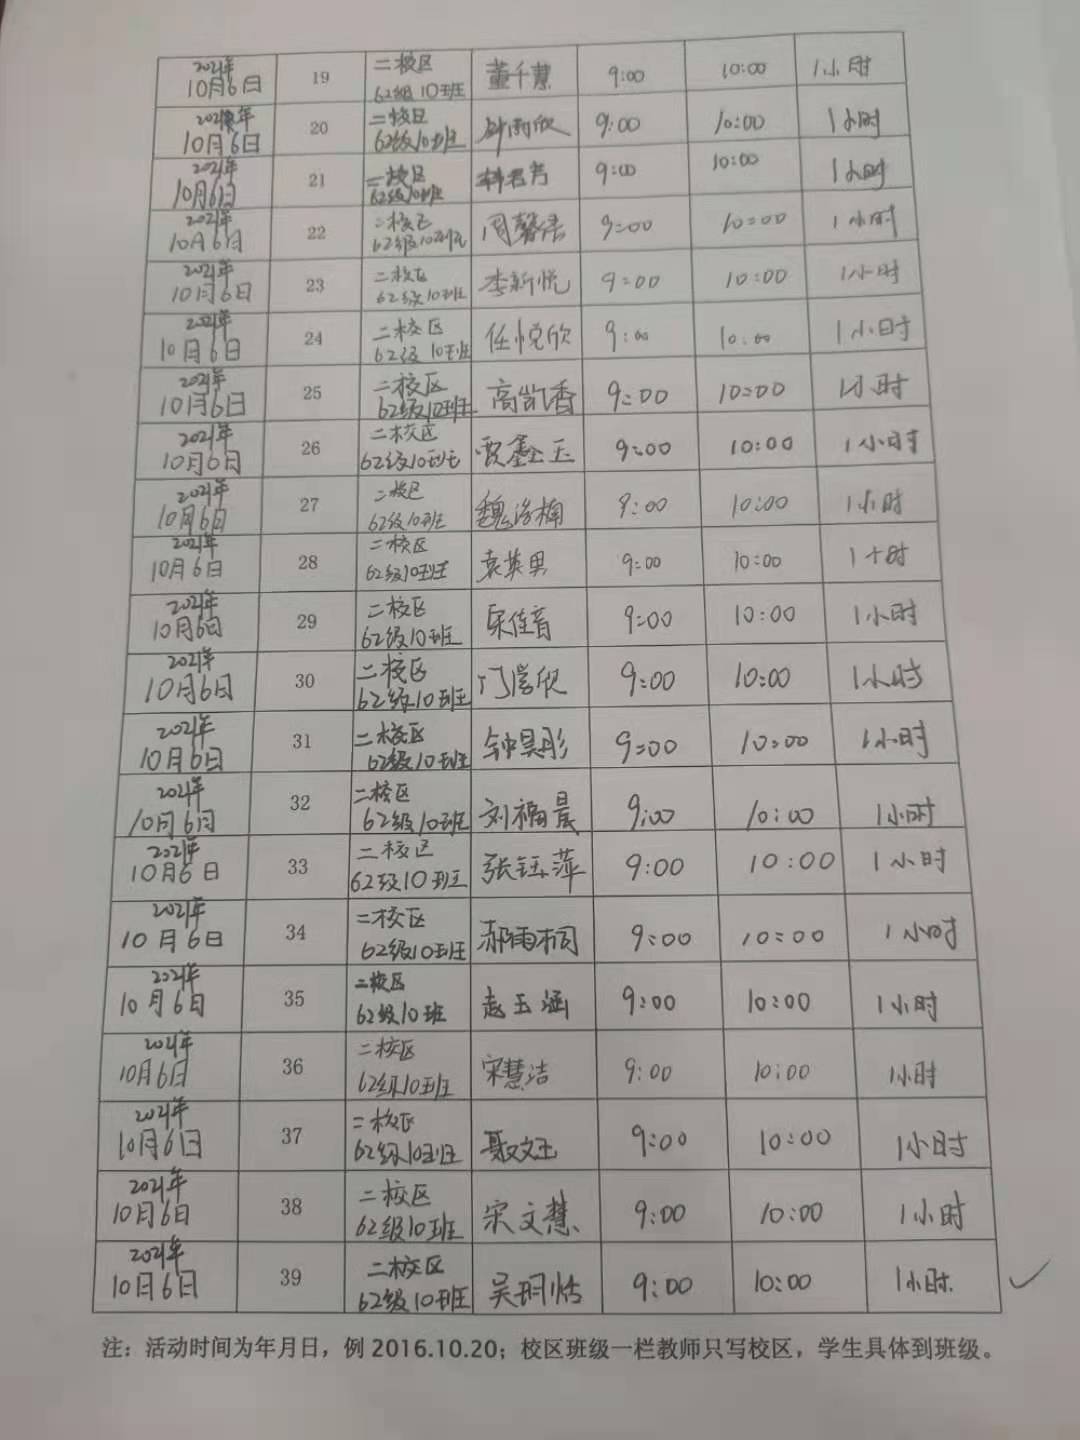 2021年10月6日 19 二校区62级10班 董千慧 9:00 10:00 1小时
2021年10月6日 20 二校区62级10班 雨欣 9:00 10:00 1小时
2021年10月6日 21 二校区62级10班 9:00 10:00 1小时
2021年10月6日 22 二校区62级10班 周馨 9:00 10:00 1小时
2021年10月6日 23 二校区62级10班 李新悦 9:00 10:00 1小时
2021年10月6日 24 二校区62级10班 任悦欣 9:00 10:00 1小时
2021年10月6日 25 二校区62级10班 高凯香 9:00 10:00 1小时
2021年10月6日 26 二校区62级10班 贾鑫玉 9:00 10:00 1小时
2021年10月6日 27 二校区62级10班 魏 楠 9:00 10:00 1小时
2021年10月6日 28 二校区62级10班 袁英男 9:00 10:00 1小时
2021年10月6日 29 二校区62级10班 宋佳音 9:00 10:00 1小时
2021年10月6日 30 二校区62级10班 门 欣 9:00 10:00 1小时
2021年10月6日 31 二校区62级10班 钟昊彤 9:00 10:00 1小时
2021年10月6日 32 二校区62级10班 刘福晨 9:00 10:00 1小时
2021年10月6日 33 二校区62级10班 张钰萍 9:00 10:00 1小时
2021年10月6日 34 二校区62级10班 郝雨桐 9:00 10:00 1小时
2021年10月6日 35 二校区62级10班 赵玉涵 9:00 10:00 1小时
2021年10月6日 36 二校区62级10班 宋慧洁 9:00 10:00 1小时
2021年10月6日 37 二校区62级10班 聂文玉 9:00 10:00 1小时
2021年10月6日 38 二校区62级10班 宋文慧 9:00 10:00 1小时
2021年10月6日 39 二校区62级10班 吴玥恬 9:00 10:00 1小时
注：活动时间为年月日，例 2016.10.20；校区班级一栏教师只写校区，学生具体到班级。